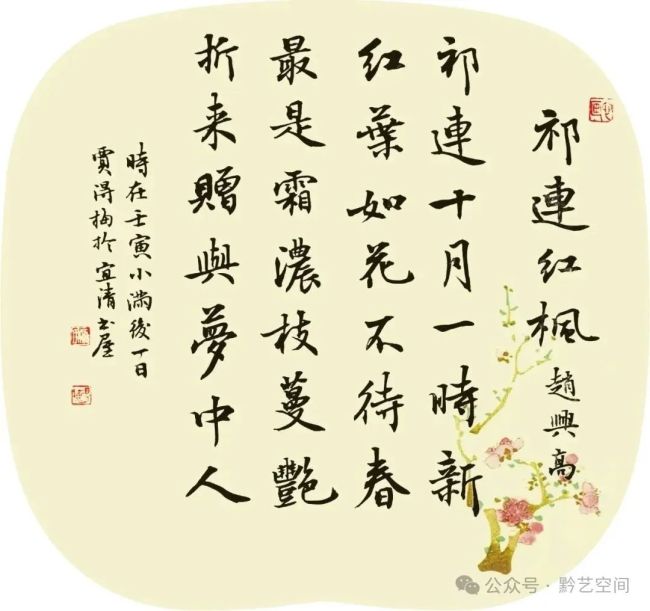 祁連红楓 趙興高
祁連十月一時新
红葉如花不待春
最是霜濃枝蔓艷
折来贈與夢中人
時在壬寅小滿後一日
賈得梅於宜清书屋
公众号·黔艺空间